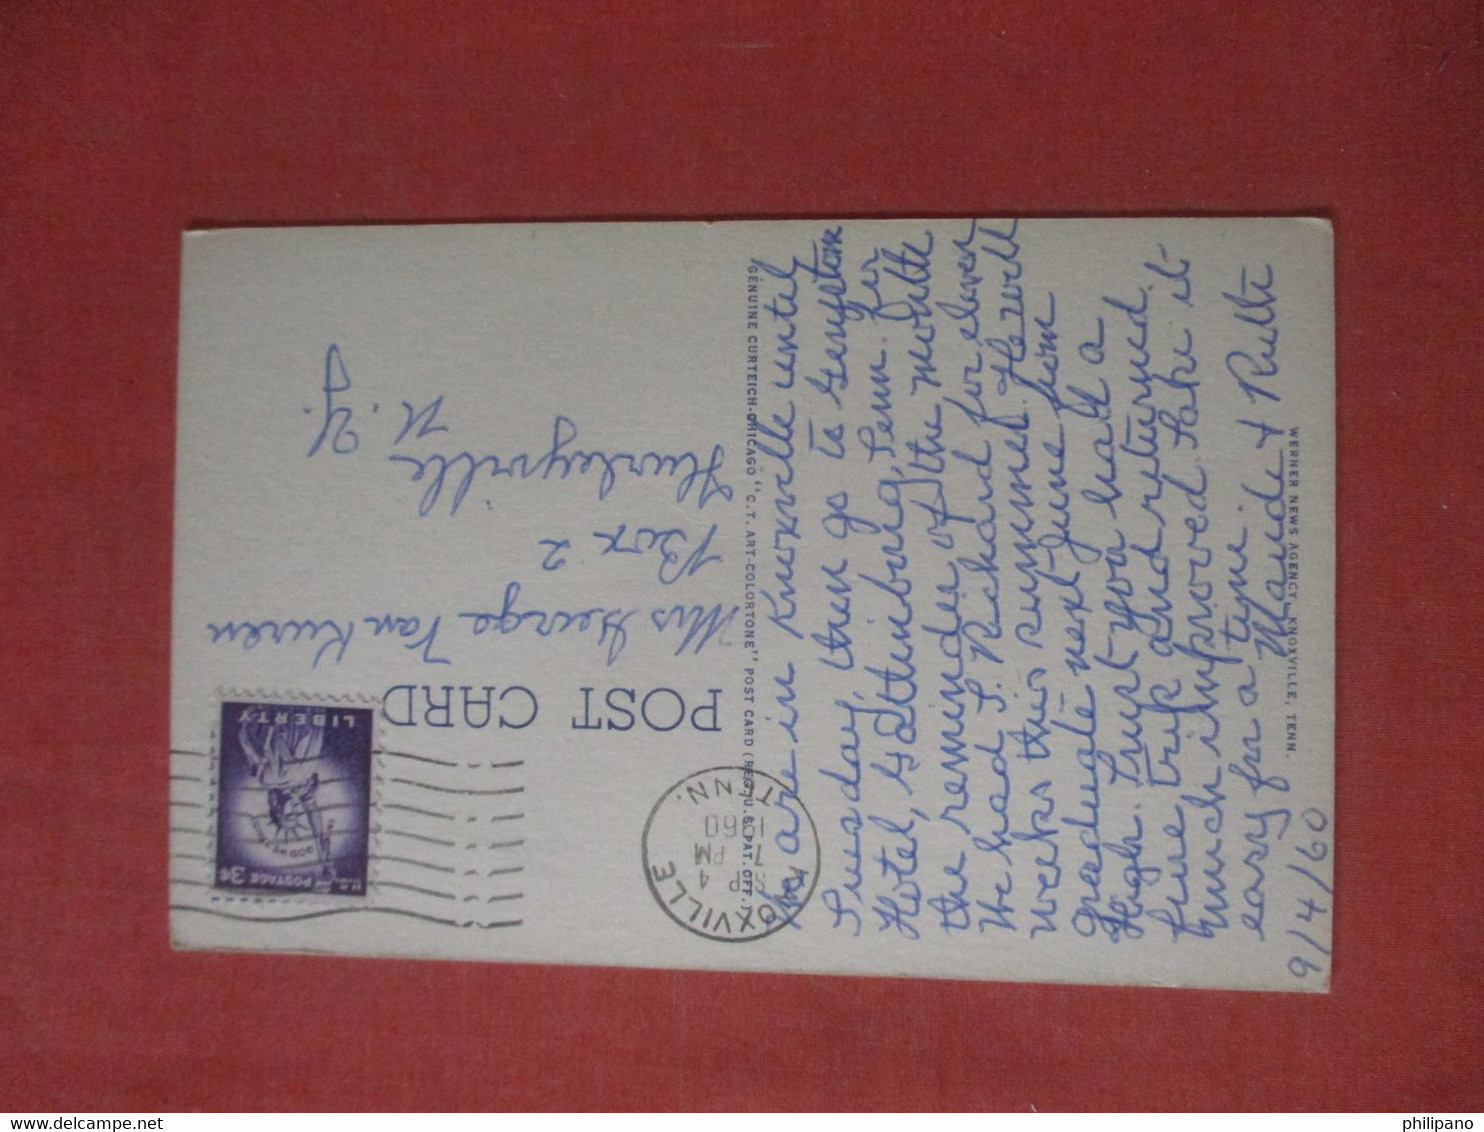 We are in Knoxville until
Tuesday, then go to Greystone
Hotel, Gatlinburg, Tenn. for
the reminder of the month
We had S. Richard for eleven
weeks this summer. He will
graduate next June from
High. Trust you had a
fine trip and returned
much improved. Take it
easy for a time.
Maude & Ruth
9/4/60
WERNER NEWS AGENCY, KNOXVILLE, TENN.
GENUINE CURTEICH-CHICAGO "C.T. ART-COLORTONE" POST CARD (REG. U.S. PAT. OFF.)
POST CARD
KNOXVILLE
SEP 4
7 PM
1960
TENN.
U.S. POSTAGE 3¢
IN GOD WE TRUST
LIBERTY
Mrs George Van Keuren
Box 2
Hurleyville
N.Y.
philipano